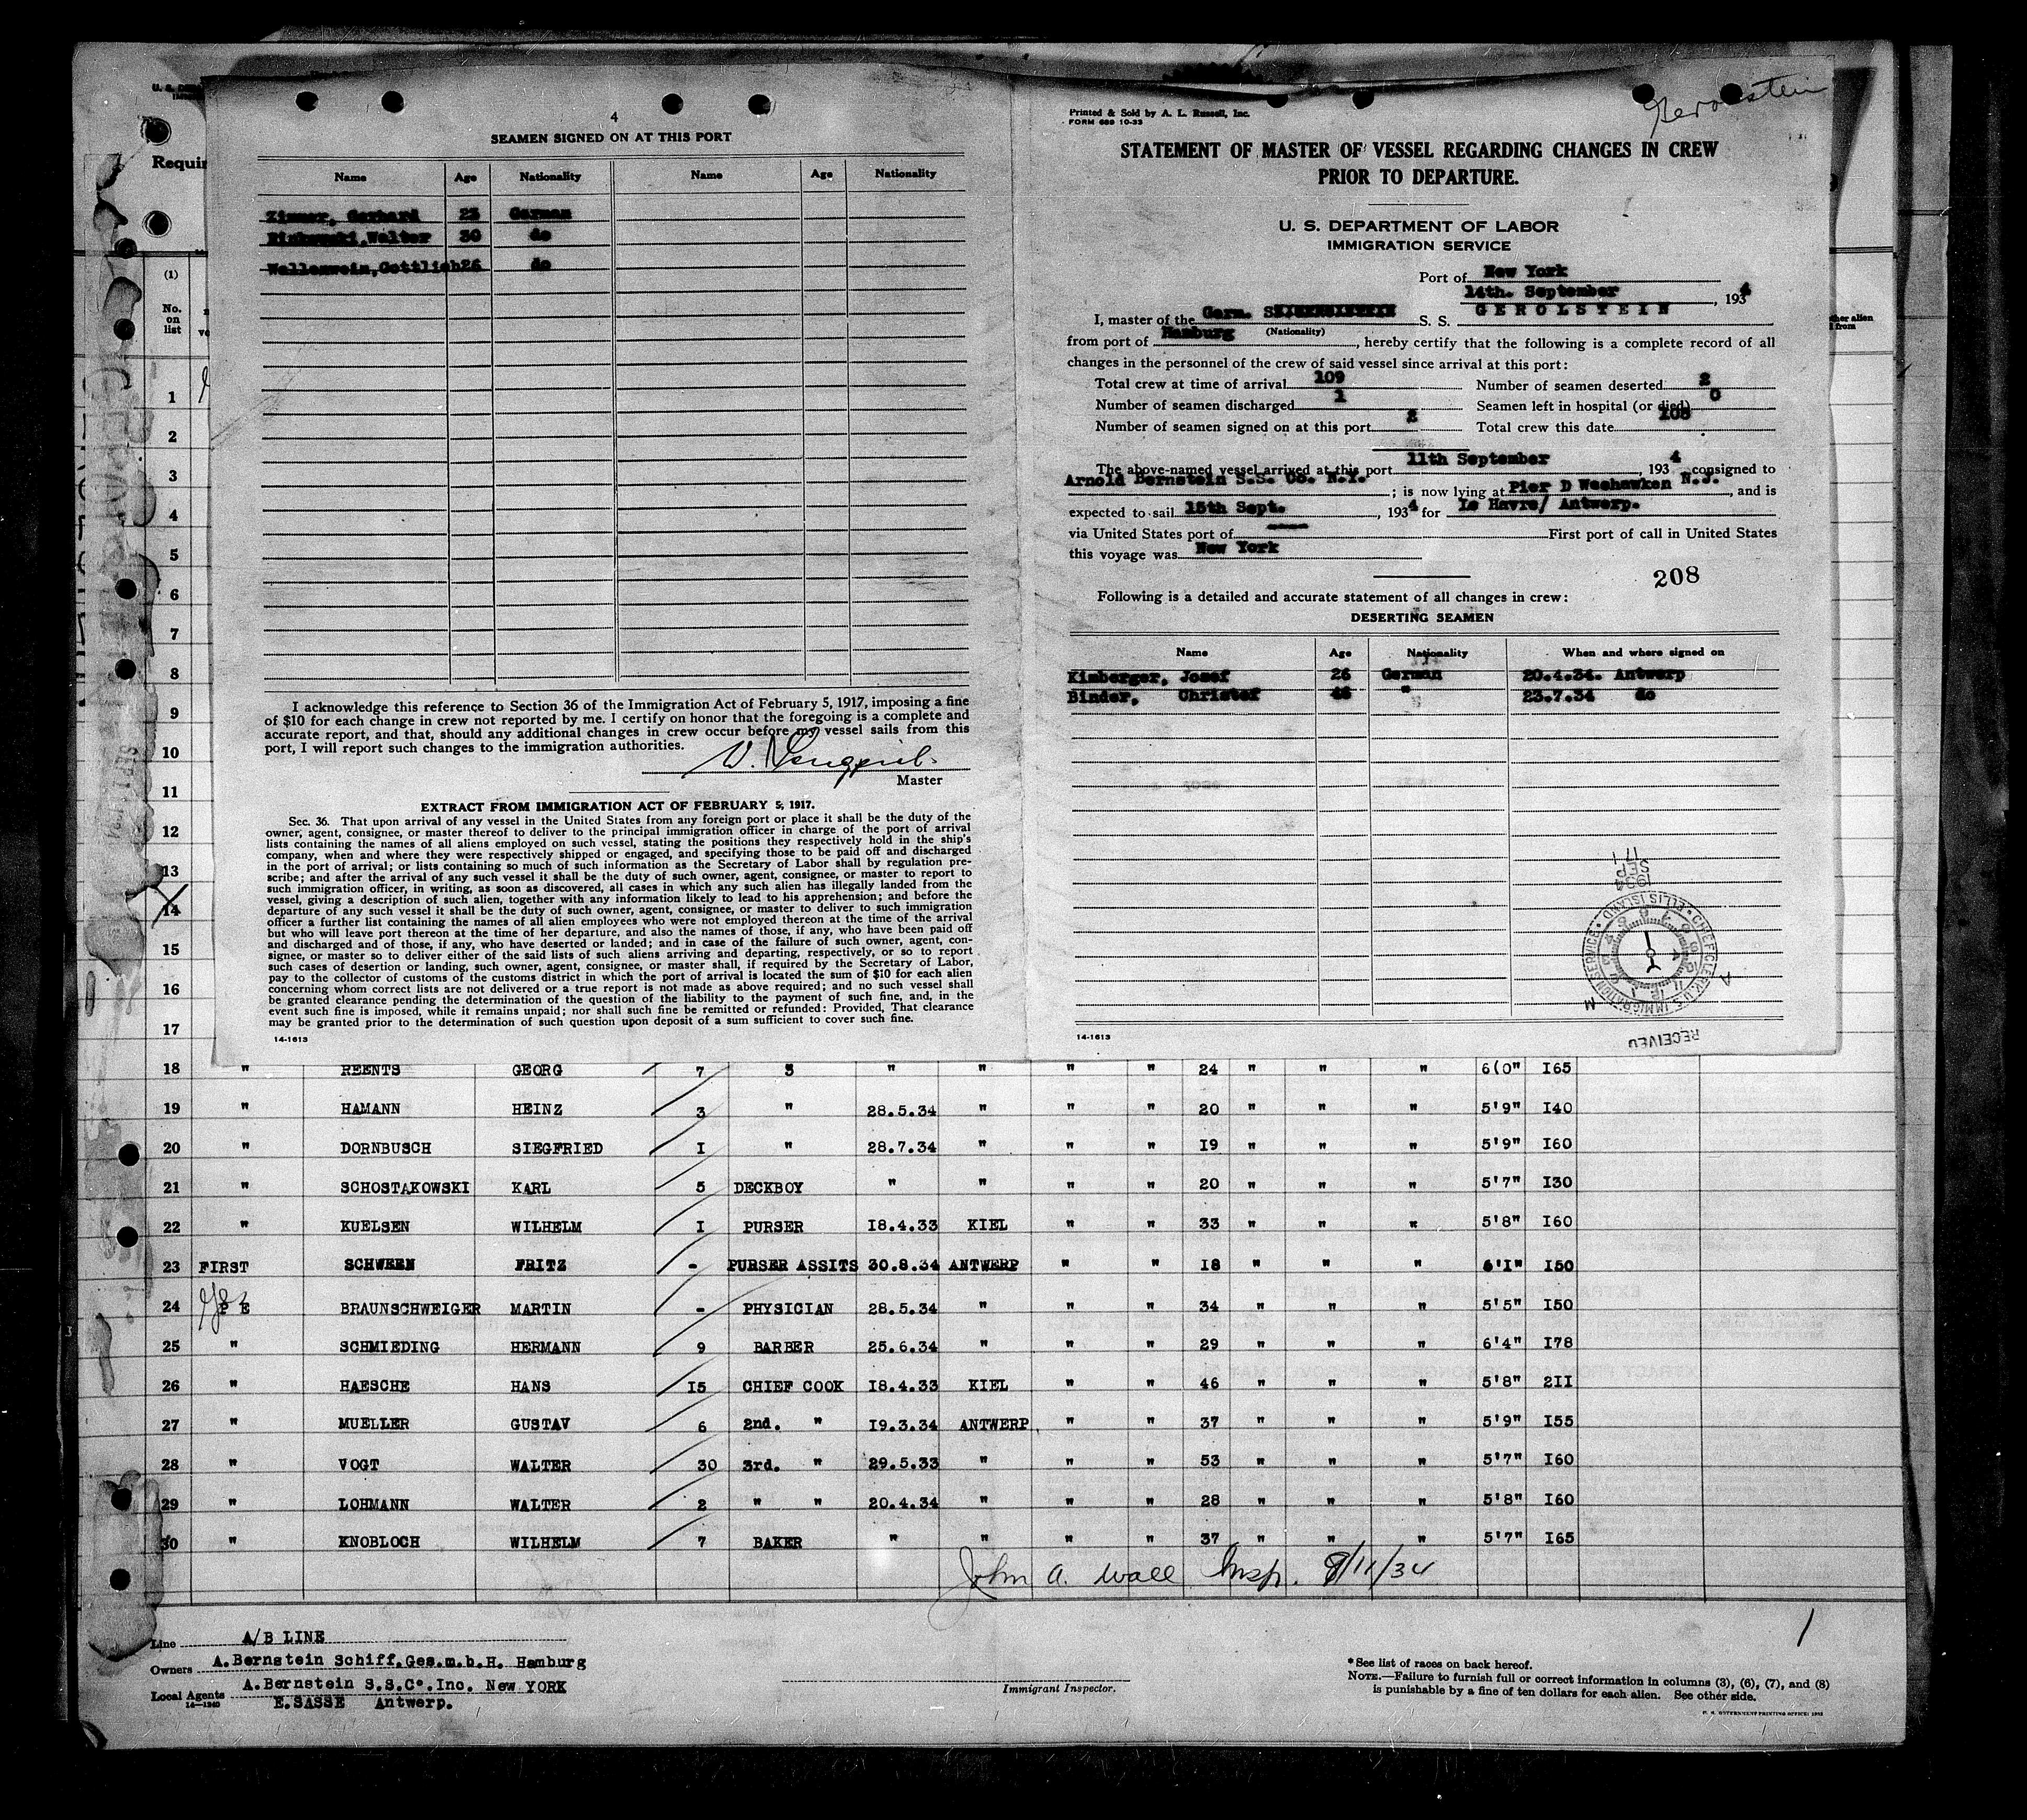 4
SEAMEN SIGNED ON AT THIS PORT
Name Age Nationality Name Age Nationality
Zimmer, Gerhard 23 German
Walter 30 do
Wellenwein, Gottlieb 26 do
I acknowledge this reference to Section 36 of the Immigration Act of February 5, 1917, imposing a fine
of $10 for each change in crew not reported by me. I certify on honor that the foregoing is a complete and
accurate report, and that, should any additional changes in crew occur before my vessel sails from this
port, I will report such changes to the immigration authorities.
Master
EXTRACT FROM IMMIGRATION ACT OF FEBRUARY 5, 1917.
Sec. 36. That upon arrival of any vessel in the United States from any foreign port or place it shall be the duty of the
owner, agent, consignee, or master thereof to deliver to the principal immigration officer in charge of the port of arrival
lists containing the names of all aliens employed on such vessel, stating the positions they respectively hold in the ship's
company, when and where they were respectively shipped or engaged, and specifying those to be paid off and discharged
in the port of arrival; or lists containing so much of such information as the Secretary of Labor shall by regulation pre-
scribe; and after the arrival of any such vessel it shall be the duty of such owner, agent, consignee, or master to report to
such immigration officer, in writing, as soon as discovered, all cases in which any such alien has illegally landed from the
vessel, giving a description of such alien, together with any information likely to lead to his apprehension; and before the
departure of any such vessel it shall be the duty of such owner, agent, consignee, or master to deliver to such immigration
officer a further list containing the names of all alien employees who were not employed thereon at the time of the arrival
but who will leave port thereon at the time of her departure, and also the names of those, if any, who have been paid off
and discharged and of those, if any, who have deserted or landed; and in case of the failure of such owner, agent, con-
signee, or master so to deliver either of the said lists of such aliens arriving and departing, respectively, or so to report
such cases of desertion or landing, such owner, agent, consignee, or master shall, if required by the Secretary of Labor,
pay to the collector of customs of the customs district in which the port of arrival is located the sum of $10 for each alien
concerning whom correct lists are not delivered or a true report is not made as above required; and no such vessel shall
be granted clearance pending the determination of the question of the liability to the payment of such fine, and, in the
event such fine is imposed, while it remains unpaid; nor shall such fine be remitted or refunded: Provided, That clearance
may be granted prior to the determination of such question upon deposit of a sum sufficient to cover such fine.
14-1613
Gerolstein
Printed & Sold by A. L. Russell, Inc.
FORM 689 10-33
STATEMENT OF MASTER OF VESSEL REGARDING CHANGES IN CREW
PRIOR TO DEPARTURE.
U. S. DEPARTMENT OF LABOR
IMMIGRATION SERVICE
Port of New York
14th. September, 1934
I, master of the Germ. S. S. GEROLSTEIN
(Nationality)
from port of Hamburg, hereby certify that the following is a complete record of all
changes in the personnel of the crew of said vessel since arrival at this port:
Total crew at time of arrival 109 Number of seamen deserted 2
Number of seamen discharged 1 Seamen left in hospital (or died) 0
Number of seamen signed on at this port 2 Total crew this date 108
The above-named vessel arrived at this port 11th September, 1934 consigned to
Arnold Bernstein S.S. Co. N.Y.; is now lying at Pier D Weehawken N.J., and is
expected to sail 15th Sept., 1934 for Le Havre/ Antwerp.
via United States port of First port of call in United States
this voyage was New York
208
Following is a detailed and accurate statement of all changes in crew:
DESERTING SEAMEN
Name Age Nationality When and where signed on
Kimberger, Josef 26 German 20.4.34. Antwerp
Binder, Christof " 23.7.34 do
1934
SEP
17
CHIEF CLERK U.S. IMMIGRATION SERVICE • ELLIS ISLAND
A M
RECEIVED
14-1613
Requir
(1)
No.
on
list
1
2
3
4
5
6
7
8
9
10
11
12
13
14
15
16
17
18 " REENTS GEORG 7 3 " " " " 24 " " " 6(0" I65
19 " HAMANN HEINZ 3 " 28.5.34 " " " 20 " " " 5'9" I40
20 " DORNBUSCH SIEGFRIED I " 28.7.34 " " " I9 " " " 5'9" I60
21 " SCHOSTAKOWSKI KARL 5 DECKBOY " " " " 20 " " " 5'7" I30
22 " KUELSEN WILHELM I PURSER I8.4.33 KIEL " " 33 " " " 5'8" I60
23 FIRST SCHWEEN FRITZ - PURSER ASSITS 30.8.34 ANTWERP " " I8 " " " 6'I" I50
24 P E BRAUNSCHWEIGER MARTIN - PHYSICIAN 28.5.34 " " " 34 " " " 5'5" I50
25 " SCHMIEDING HERMANN 9 BARBER 25.6.34 " " " 29 " " " 6'4" I78
26 " HAESCHE HANS I5 CHIEF COOK I8.4.33 KIEL " " 46 " " " 5'8" 2II
27 " MUELLER GUSTAV 6 2nd. " I9.3.34 ANTWERP " " 37 " " " 5'9" I55
28 " VOGT WALTER 30 3rd. " 29.5.33 " " " 53 " " " 5'7" I60
29 " LOHMANN WALTER 2 " " 20.4.34 " " " 28 " " " 5'8" I60
30 " KNOBLOCH WILHELM 7 BAKER " " " " 37 " " " 5'7" I65
John A. Wall Insp. 9/11/34
1
Line A/B LINE
Owners A.Bernstein Schiff.Ges.m.b.H. Hamburg
Local Agents A.Bernstein S.S.Co.Inc. New YORK
14-1240 E.SASSE Antwerp.
Immigrant Inspector.
*See list of races on back hereof.
NOTE.—Failure to furnish full or correct information in columns (3), (6), (7), and (8)
is punishable by a fine of ten dollars for each alien. See other side.